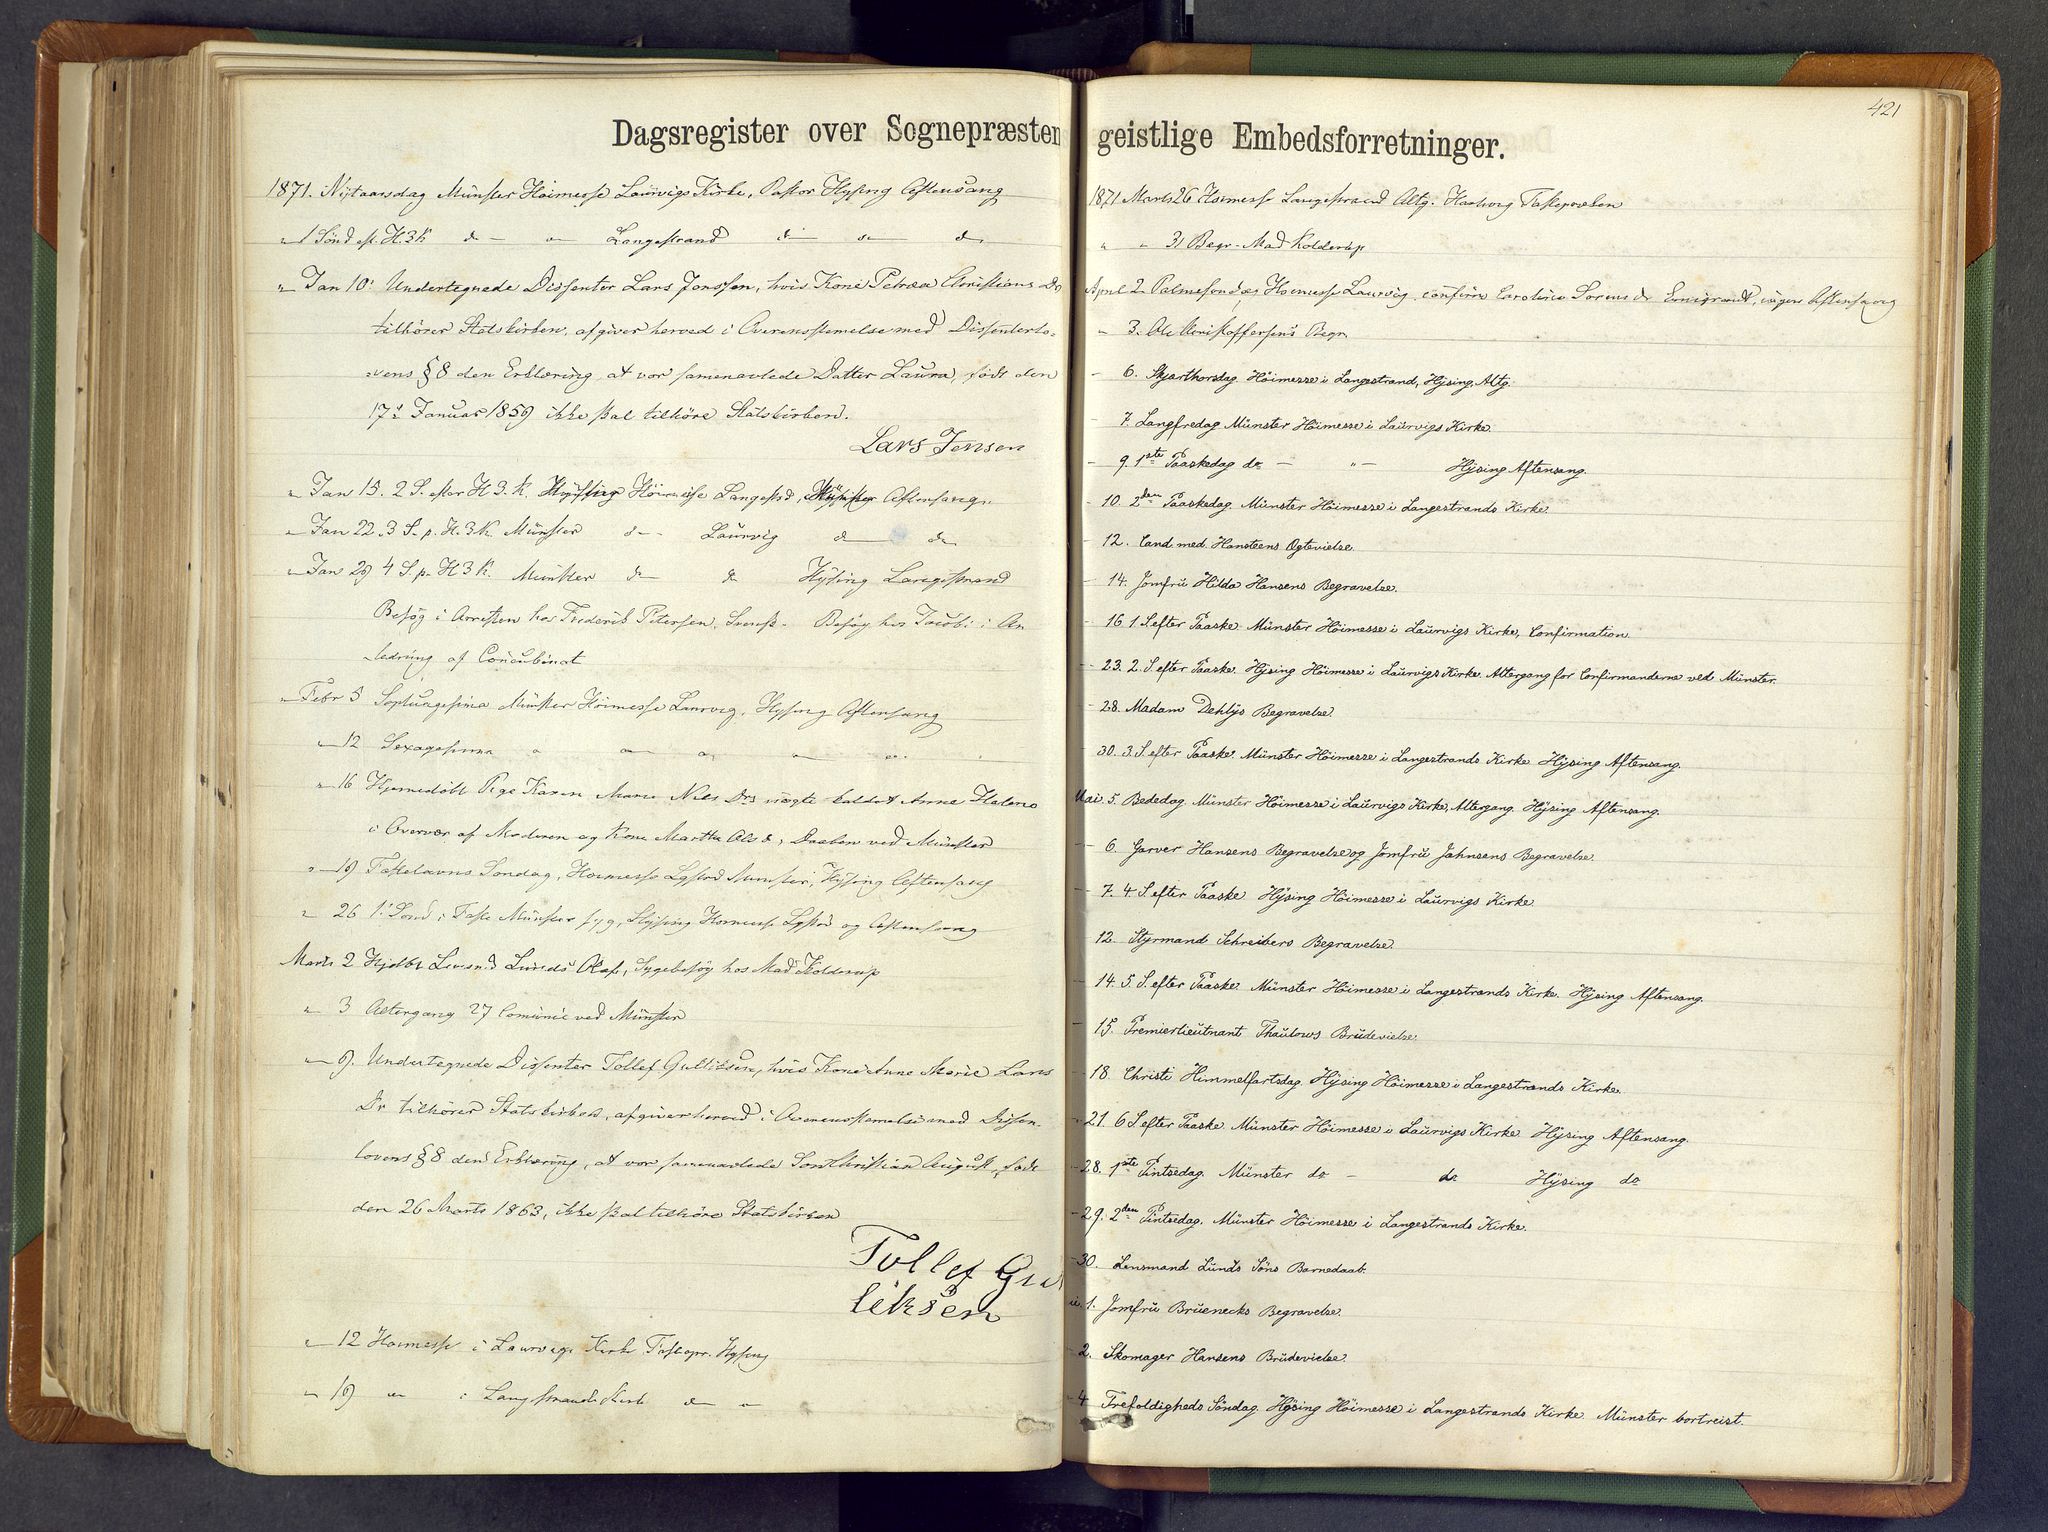 Dagsregister over Sognepræsten
1871. Nytaarsdag Münster Höimesse Laurvigs Kirke, Pastor Hysing Aftensang
" 1 Sönd. ef. H.3K do " Langestrand do do do
" Jan 10. Undertegnede Dissenter Lars Jenssen, hvis Kone Petrea Christians Dr
tilhörer Statskirken, afgiver herved i Overensstemelse med Dissenterlo-
vens § 8 den Erklæring, at vor samenavlede Datter Laura, födt den
17de Januar 1859 ikke skal tilhöre Statskirken.
Lars Jensen
" Jan 15. 2 S. efter H 3. K. Hysing Höimesse Langestrd, Münster Aftensang.
" Jan 22. 3 S. p. H. 3K. Münster do Laurvig do do
" Jan 29 4 S. p. H 3 K. Münster do do Hysing Langestrand
Besög i Arresten hos Frederik Petersen, Besög hos Jacobi i An
ledning af Concubinat
" Febr 5 Septuagesima Münster Höimesse Laurvig, Hysing Aftensang
" 12 Sexagesima " " " " "
" 16 Hjemmedöbt Pige Karen Marie Nils Drs uægte kaldet Anne Helene
i Overvær af Moderen og Kone Martha Ols d, Daaben ved Münster
" 19 Fastelavns Söndag, Höimesse Lgstrd Münster, Hysing Aftensang
" 26 1. Sönd. i Faste Münster syg, Hysing Höimesse Lgstrd og Aftensang
Marts 2 Hjdbt Lensmd Lunds Olaf, Sygebesög hos Mad Kolderup
" 3 Altergang 27 Comunic ved Münster
" 9. Undertegnede Dissenter Tollef Gulliksen, hvis Kone Anne Marie Lars
Dr tilhörer Statskirken, afgiver herved i Overensstemelse med Dissen-
lovens § 8 den Erklæring, at vor samenavlede Sön Christian August, födt
den 26 Marts 1863, ikke skal tilhöre Statskirken
Tollef Gul
liksen
" 12 Höimesse i Laurvigs Kirke Hysing
" 19 " i Langestrands Kirke do "
421
geistlige Embedsforretninger.
1871 Marts 26 Höimesse Langestrand Altg.
" " 31 Begr. Mad Kolderup
April 2 Palmesöndag Höimesse Laurvig, confirm Caroline Sörens dr Emigrant, ingen Aftensang
" 3. Ole Kristoffersens Begr.
- 6. Skjærthorsdag Höimesse i Langestrand, Hysing, Altg.
- 7. Langfredag Münster Höimesse i Laurvigs Kirke.
- 9. 1ste Paaskedag do - "- Hysing Aftensang.
- 10. 2den Paaskedag. Münster Höimesse i Langestrands Kirke.
- 12. Cand. med. Hansteens Ægtevielse.
- 14. Jomfru Hilda Hansens Begravelse.
- 16 1. S. efter Paaske. Münster Höimesse i Laurvigs Kirke, Confirmation
- 23. 2. S. efter Paaske. Hysing Höimesse i Laurvigs Kirke. Altergang for Confirmanderne ved Münster.
- 28. Madam Dehlys Begravelse.
- 30. 3. S. efter Paaske. Münster Höimesse i Langestrands Kirke Hysing Aftensang.
Mai. 5. Bededag. Münster Höimesse i Laurvigs Kirke, Altergang. Hysing Aftensang.
- 6. Garver Hansens Begravelse og Jomfru Jahnsens Begravelse.
- 7. 4. S. efter Paaske Hysing Höimesse i Laurvigs Kirke.
- 12. Styrmand Schreibers Begravelse.
- 14. 5. S. efter Paaske Münster Höimesse i Langestrands Kirke. Hysing Aftensang.
- 15. Premierlieutnant Thaulows Brudevielse.
- 18. Christi Himmelfartsdag. Hysing Höimesse i Langestrands Kirke.
- 21. 6 S. efter Paaske. Münster Höimesse i Laurvigs Kirke. Hysing Aftensang.
- 28. 1ste Pintsedag. Münster do - do Hysing do
- 29. 2den Pintsedag. Münster Höimesse i Langestrands Kirke.
- 30. Lensmand Lunds Söns Barnedaab.
1. Jomfru Bruenecks Begravelse.
- 2. Skomager Hansens Brudevielse.
- 4 Trefoldigheds Söndag. Hysing Höimesse i Langestrands Kirke Münster bortreist.